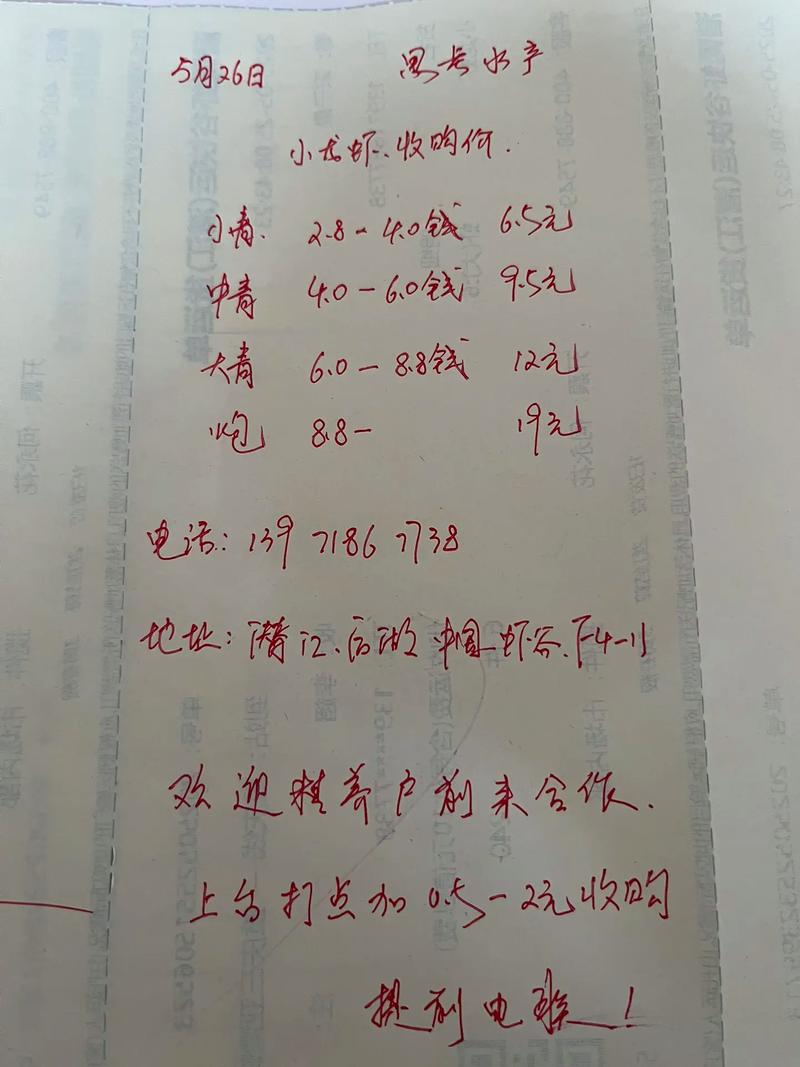 5月26日 思长水产
小龙虾、收购价.
小青. 2.8-4.0钱 6.5元
中青 4.0-6.0钱 9.5元
大青 6.0-8.8钱 12元
火炮 8.8- 19元
电话: 139 7186 7738
地址: 潜江、后湖 中国虾谷、F-4-11
欢迎精养户前来合作.
上台打点加0.5-2元收购
提前电联!